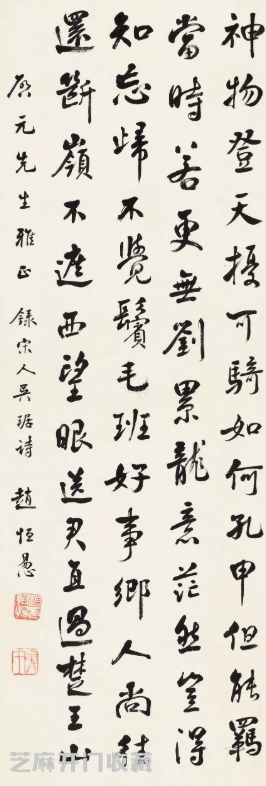 神物登天擾可騎如何孔甲但能羈
當時若更無劉累龍意茫然豈得
知忘歸不覺鬢毛班好事鄉人尚往
還斷嶺不遮西望眼送君直過楚王山
启元先生雅正 錄宋人吳琚詩 趙恒惕
芝麻开门收藏